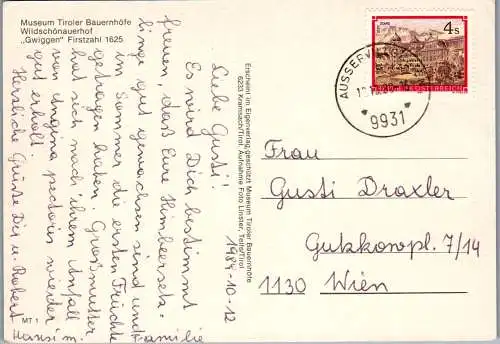 Museum Tiroler Bauernhöfe
Wildschönauerhof
„Gwiggen" Firstzahl 1625
1984-10-12
Liebe Gusti!
Es wird Dich bestimmt
freuen, daß Eure Himbeersetz-
linge gut gewachsen sind und
im Sommer die ersten Früchte
getragen haben. Großmutter
hat sich nach ihrem Anfall
von Angina pectoris wieder
gut erholt.
Herzliche Grüße Dis u. Robert
Hansi m. Familie
MT 1
Erscheint im Eigenverlag, geschützt Museum Tiroler Bauernhöfe
6233 Kramsach/Tirol, Aufnahme Foto Linster, Telfs/Tirol
4 S
REPUBLIK ÖSTERREICH
AUSSERV
9931
Frau
Gusti Draxler
Gutzkowpl. 7/14
1130 Wien